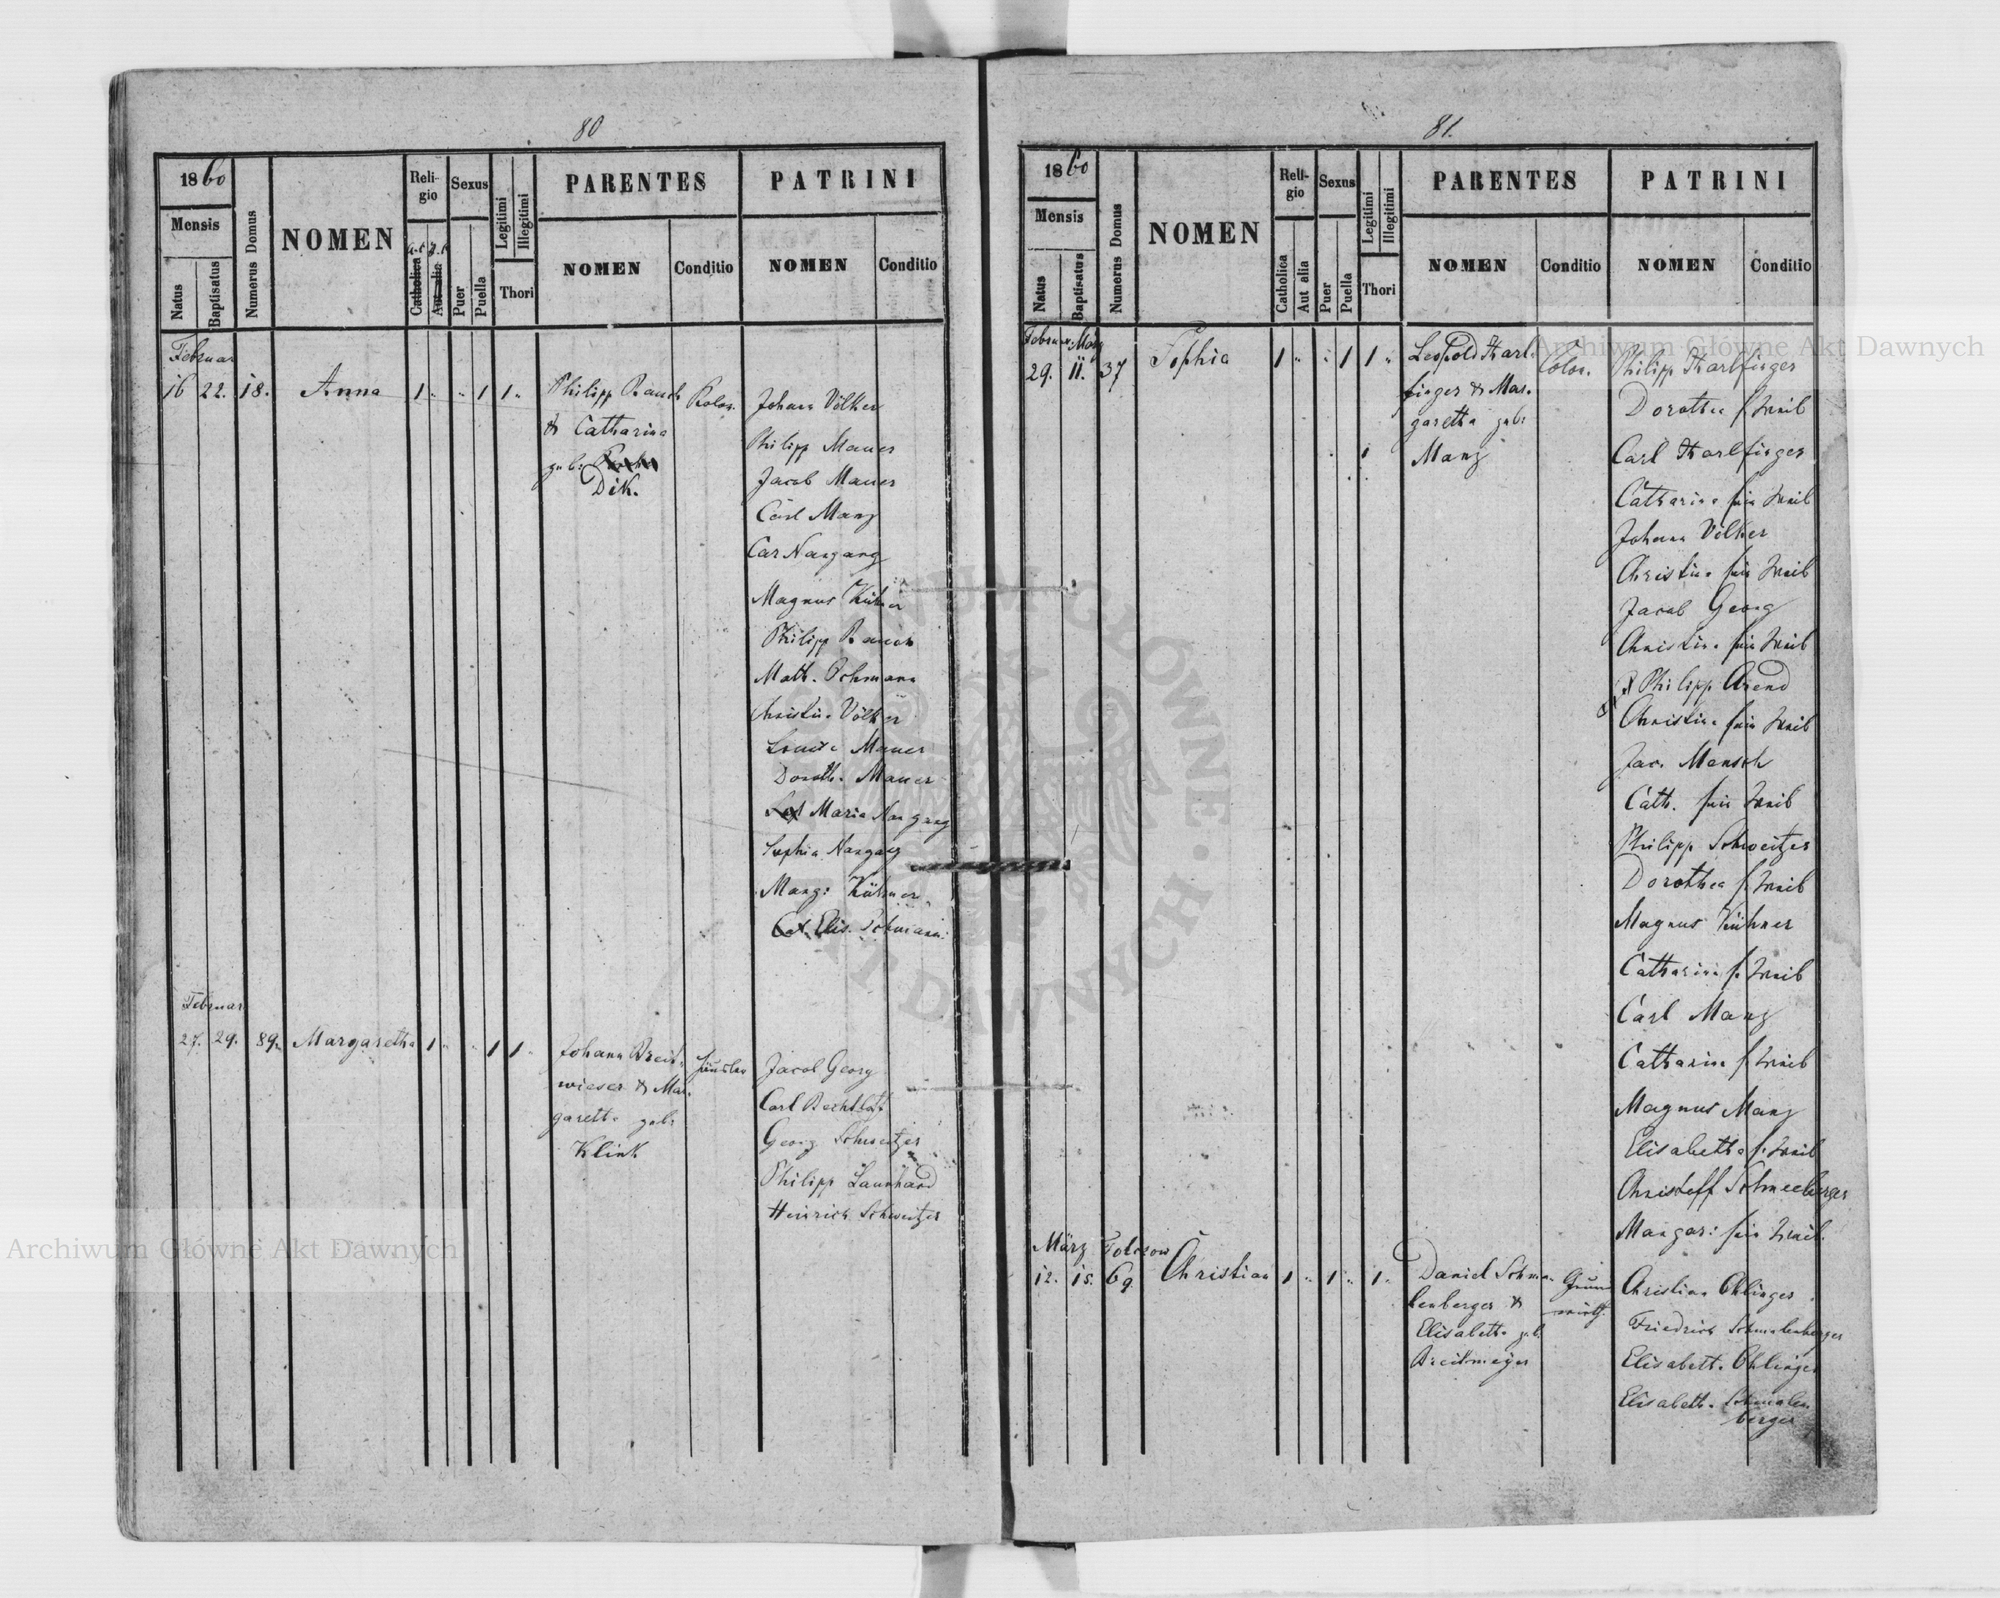 80
1860
Mensis
Natus
Baptisatus
Numerus Domus
NOMEN
Religio
Catholica
Aut alia
Sexus
Puer
Puella
Legitimi
Illegitimi
Thori
PARENTES
NOMEN
Conditio
PATRINI
NOMEN
Conditio
Februar
16 22. 18. Anna 1 " " 1 1 "
Philipp Rauch
& Catharina
geb:
Dik.
Kolon.
Johann Völker
Philipp Mauer
Jacob Mauer
Carl Manz
Car Nargang
Magnus Kühner
Philipp Rauch
Math. Ochmann
Christin. Völker
Louise Mauer
Doroth. Mauer
Maria Nargang
Sophia Nargang
Marg: Kühner
Elis. Ochmann
Februar
27. 29. 89. Margaretha 1 " " 1 1 "
Johann Breit-
wieser & Mar-
garetha geb:
Klink
Häusler
Jacob Georg
Carl Bechtloff
Georg Schweitzer
Philipp Launhard
Heinrich Schweitzer
81.
1860
Mensis
Natus
Baptisatus
Numerus Domus
NOMEN
Religio
Catholica
Aut alia
Sexus
Puer
Puella
Legitimi
Illegitimi
Thori
PARENTES
NOMEN
Conditio
PATRINI
NOMEN
Conditio
Februar März
29. 11. 37 Sophia 1 " " 1 1 "
Leopold Karl-
finger & Mar-
garetha geb:
Manz
Colon.
Philipp Karlfinger
Dorothea s. Weib
Carl Karlfinger
Catharina sein Weib
Johann Völker
Christina sein Weib
Jacob Georg
Christina sein Weib
Philipp Arend
Christina sein Weib
Jac. Mensch
Cath. sein Weib
Philipp Schweitzer
Dorothea s. Weib
Magnus Kühner
Catharina s. Weib
Carl Manz
Catharina s. Weib
Magnus Manz
Elisabetha s. Weib
Christoff Schneeberger
Margar: sein Weib.
März
12. 15. 69. Christian 1 " 1 " 1 "
Daniel Schma-
lenberger &
Elisabetha geb.
Breitmeyer
Grund
wirth
Christian Ohlinger
Friedrich Schmalenberger
Elisabeth. Ohlinger
Elisabeth. Schmalen
berger
Archiwum Główne Akt Dawnych
Archiwum Główne Akt Dawnych